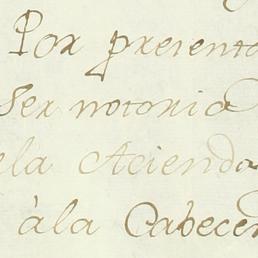 Por presenta
Ser notoria
ela Acienda
àla Cabecer